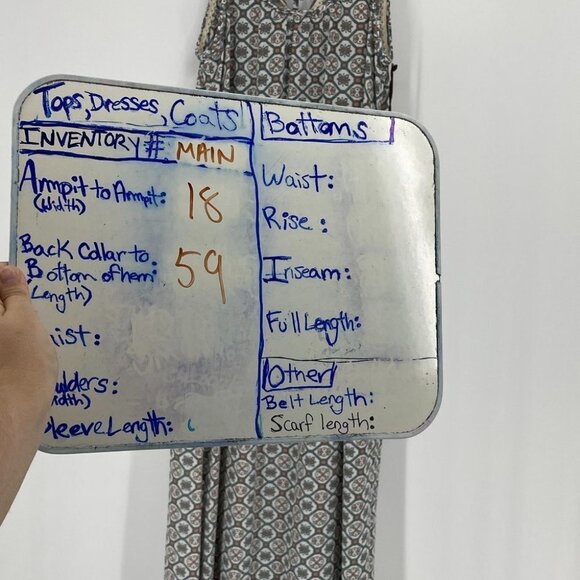 Tops, Dresses, Coats
INVENTORY # MAIN
Armpit to Armpit: 18
(Width)
Back Collar to
Bottom of hem: 59
(Length)
ist:
ulders:
idth)
leeve Length:
Bottoms
Waist:
Rise:
Inseam:
Full Length:
Other
Belt Length:
Scarf length: